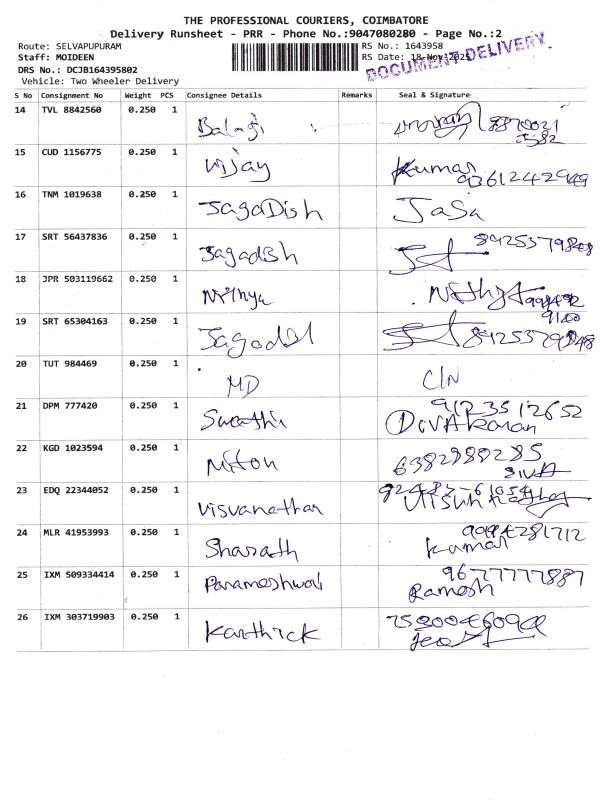 THE PROFESSIONAL COURIERS, COIMBATORE
Delivery Runsheet - PRR - Phone No.:9047080280 - Page No.:2
Route: SELVAPUPURAM RS No.: 1643958
Staff: MOIDEEN RS Date: 18-Nov-2025
DOCUMENT DELIVERY
DRS No.: DCJB164395802
Vehicle: Two Wheeler Delivery
S No Consignment No Weight PCS Consignee Details Remarks Seal & Signature
14 TVL 8842560 0.250 1 Balaji
15 CUD 1156775 0.250 1 Vijay Kumar
9361242949
16 TNM 1019638 0.250 1 JagaDish JaSa
17 SRT 56437836 0.250 1 Jagadish
18 JPR 503119662 0.250 1 Nithya
19 SRT 65304163 0.250 1
20 TUT 984469 0.250 1 MD CIN
21 DPM 777420 0.250 1 Swathi 9123512652
DivAkaran
22 KGD 1023594 0.250 1 6382980285
SIVA
23 EDQ 22344052 0.250 1 Visvanathan
24 MLR 41953993 0.250 1 Sharath
Kumar
25 IXM 509334414 0.250 1 Parameshwari 9677777887
Ramesh
26 IXM 303719903 0.250 1 Karthick